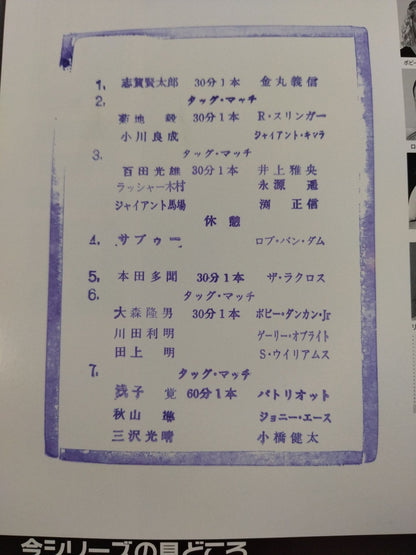 1. 志賀賢太郎 30分1本 金丸義信
2. タッグ・マッチ
菊地 毅 30分1本 R・スリンガー
小川良成 ジャイアント・キマラ
3. タッグ・マッチ
百田光雄 30分1本 井上雅央
ラッシャー木村 永源 遥
ジャイアント馬場 渕 正信
休憩
4. サブゥー ロブ・バン・ダム
5. 本田多聞 30分1本 ザ・ラクロス
6. タッグ・マッチ
大森隆男 30分1本 ボビー・ダンカン・Jr
川田利明 ゲーリー・オブライト
田上 明 S・ウイリアムス
7. タッグ・マッチ
浅子 覚 60分1本 パトリオット
秋山 準 ジョニー・エース
三沢光晴 小橋健太
今シリーズの見どころ